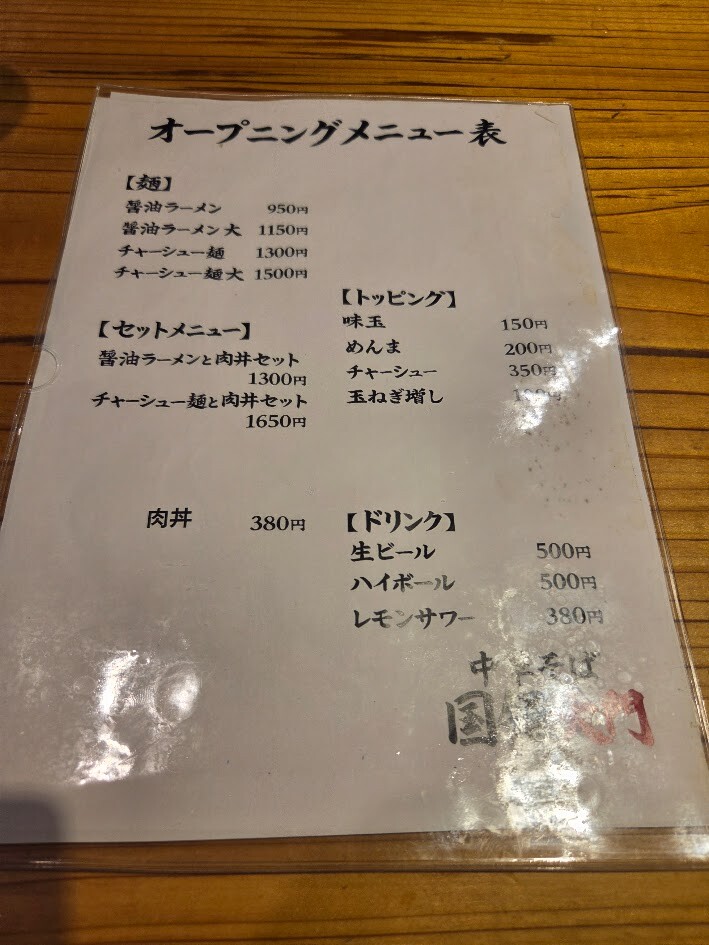 オープニングメニュー表
【麺】
醤油ラーメン 950円
醤油ラーメン大 1150円
チャーシュー麺 1300円
チャーシュー麺大 1500円
【セットメニュー】
醤油ラーメンと肉丼セット
1300円
チャーシュー麺と肉丼セット
1650円
肉丼 380円
【トッピング】
味玉 150円
めんま 200円
チャーシュー 350円
玉ねぎ増し
【ドリンク】
生ビール 500円
ハイボール 500円
レモンサワー 380円
中華そば